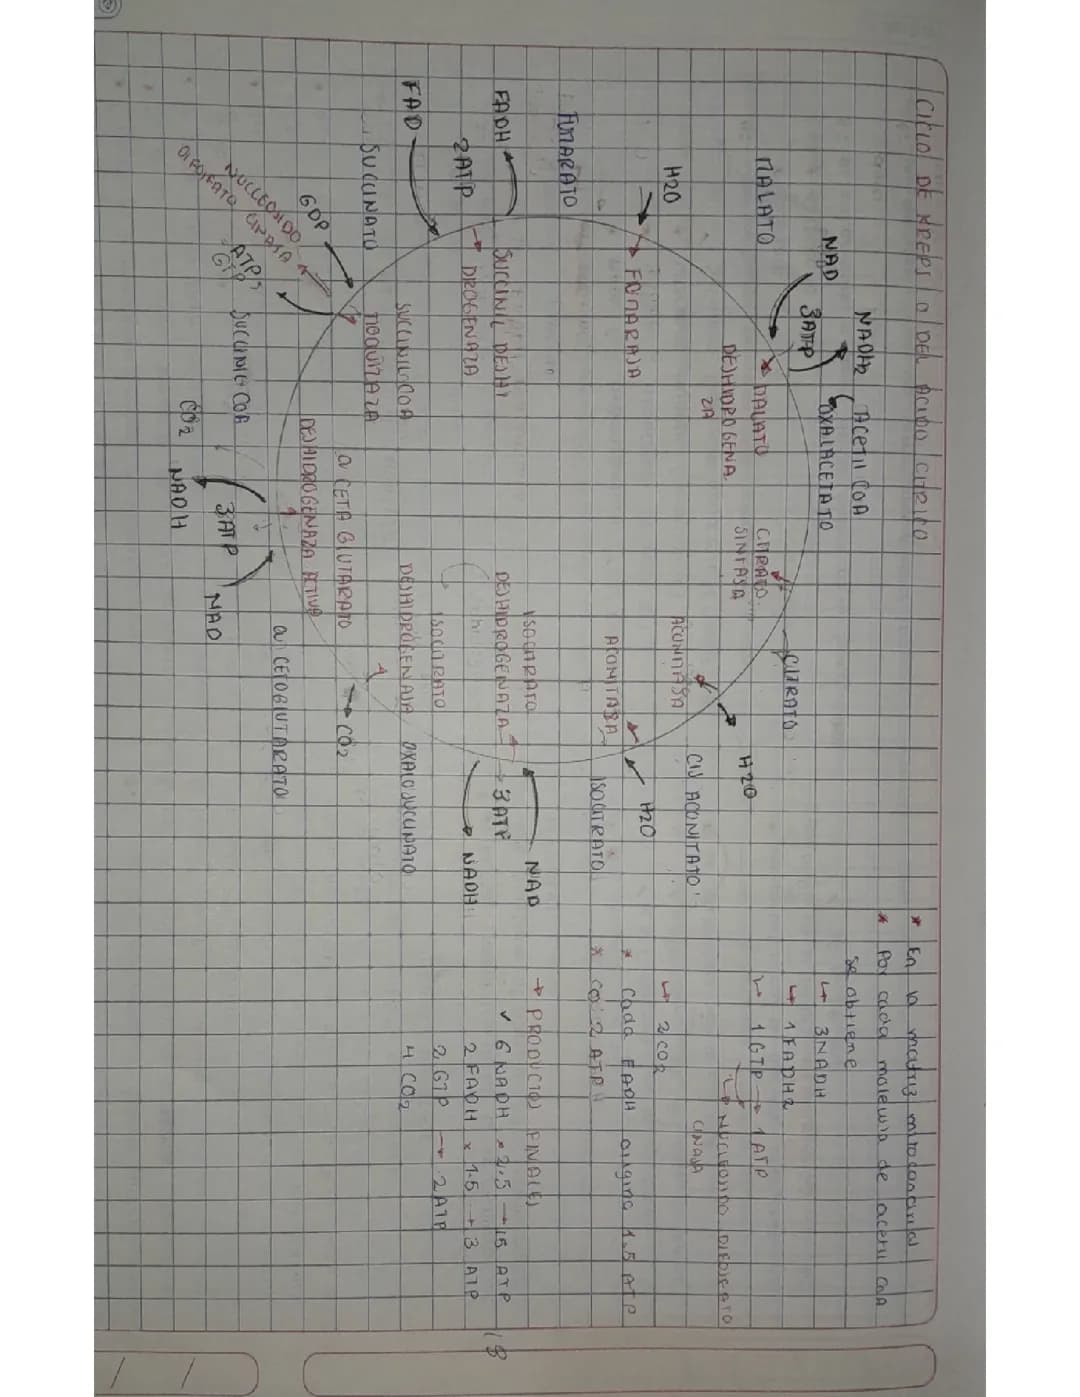 Ciclo DE KREBS O DEL ACIDO CITRICO
NADH2
ACETIL COA
NAD
3ATP
OXALACETATO
MALATO
MALATO
DESHIDROGENA
ZA
CITRATO
SINTASA
CITRATO
H2O
FUMARASA
ACONITASA
H2O
CIS ACONITATO
FUMARATO
ACONITASA
H2O
ISOCITRATO
FADH
SUCCINIL DESHI
DROGENAZA
2ATP
ISOCITRATO
DESHIDROGENAZA
NAD
3ATP
NADH
FAD
SUCCINIL COA
TIOQUITAZA
ISOCITRATO
DESHIDROGENASA
OXALOSUCCINATO
SUCCINATO
α CETA GLUTARATO
DESHIDROGENAZA ACTIVA
CO2
GDP
NUCLEOSIDO
DIFOSFATO CINASA
ATP
GTP
SUCCINIL COA
α CETOGLUTARATO
3ATP
NAD
CO2
NADH
* En la matriz mitocondrial
* Por cada molecula de acetil CoA
se obtiene
↳ 3NADH
↳ 1 FADH2
↳ 1 GTP → 1 ATP
↳ NUCLEOSIDO DIFOSFATO
CINASA
↳ 2 CO2
* Cada FADH origina 1.5 ATP
2 ATP
→ PRODUCTOS FINALES
✓ 6 NADH × 2.5 → 15 ATP
2 FADH × 1.5 → 3 ATP
18
2 GTP → 2 ATP
4 CO2